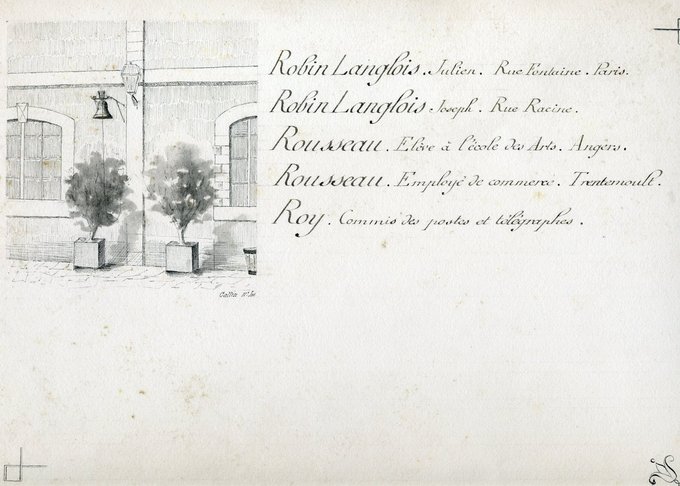 Robin Langlois. Julien. Rue Fontaine. Paris.
Robin Langlois Joseph. Rue Racine.
Rousseau. Elève à l'école des Arts. Angers.
Rousseau. Employé de commerce. Trentemoult.
Roy. Commis des postes et télégraphes.